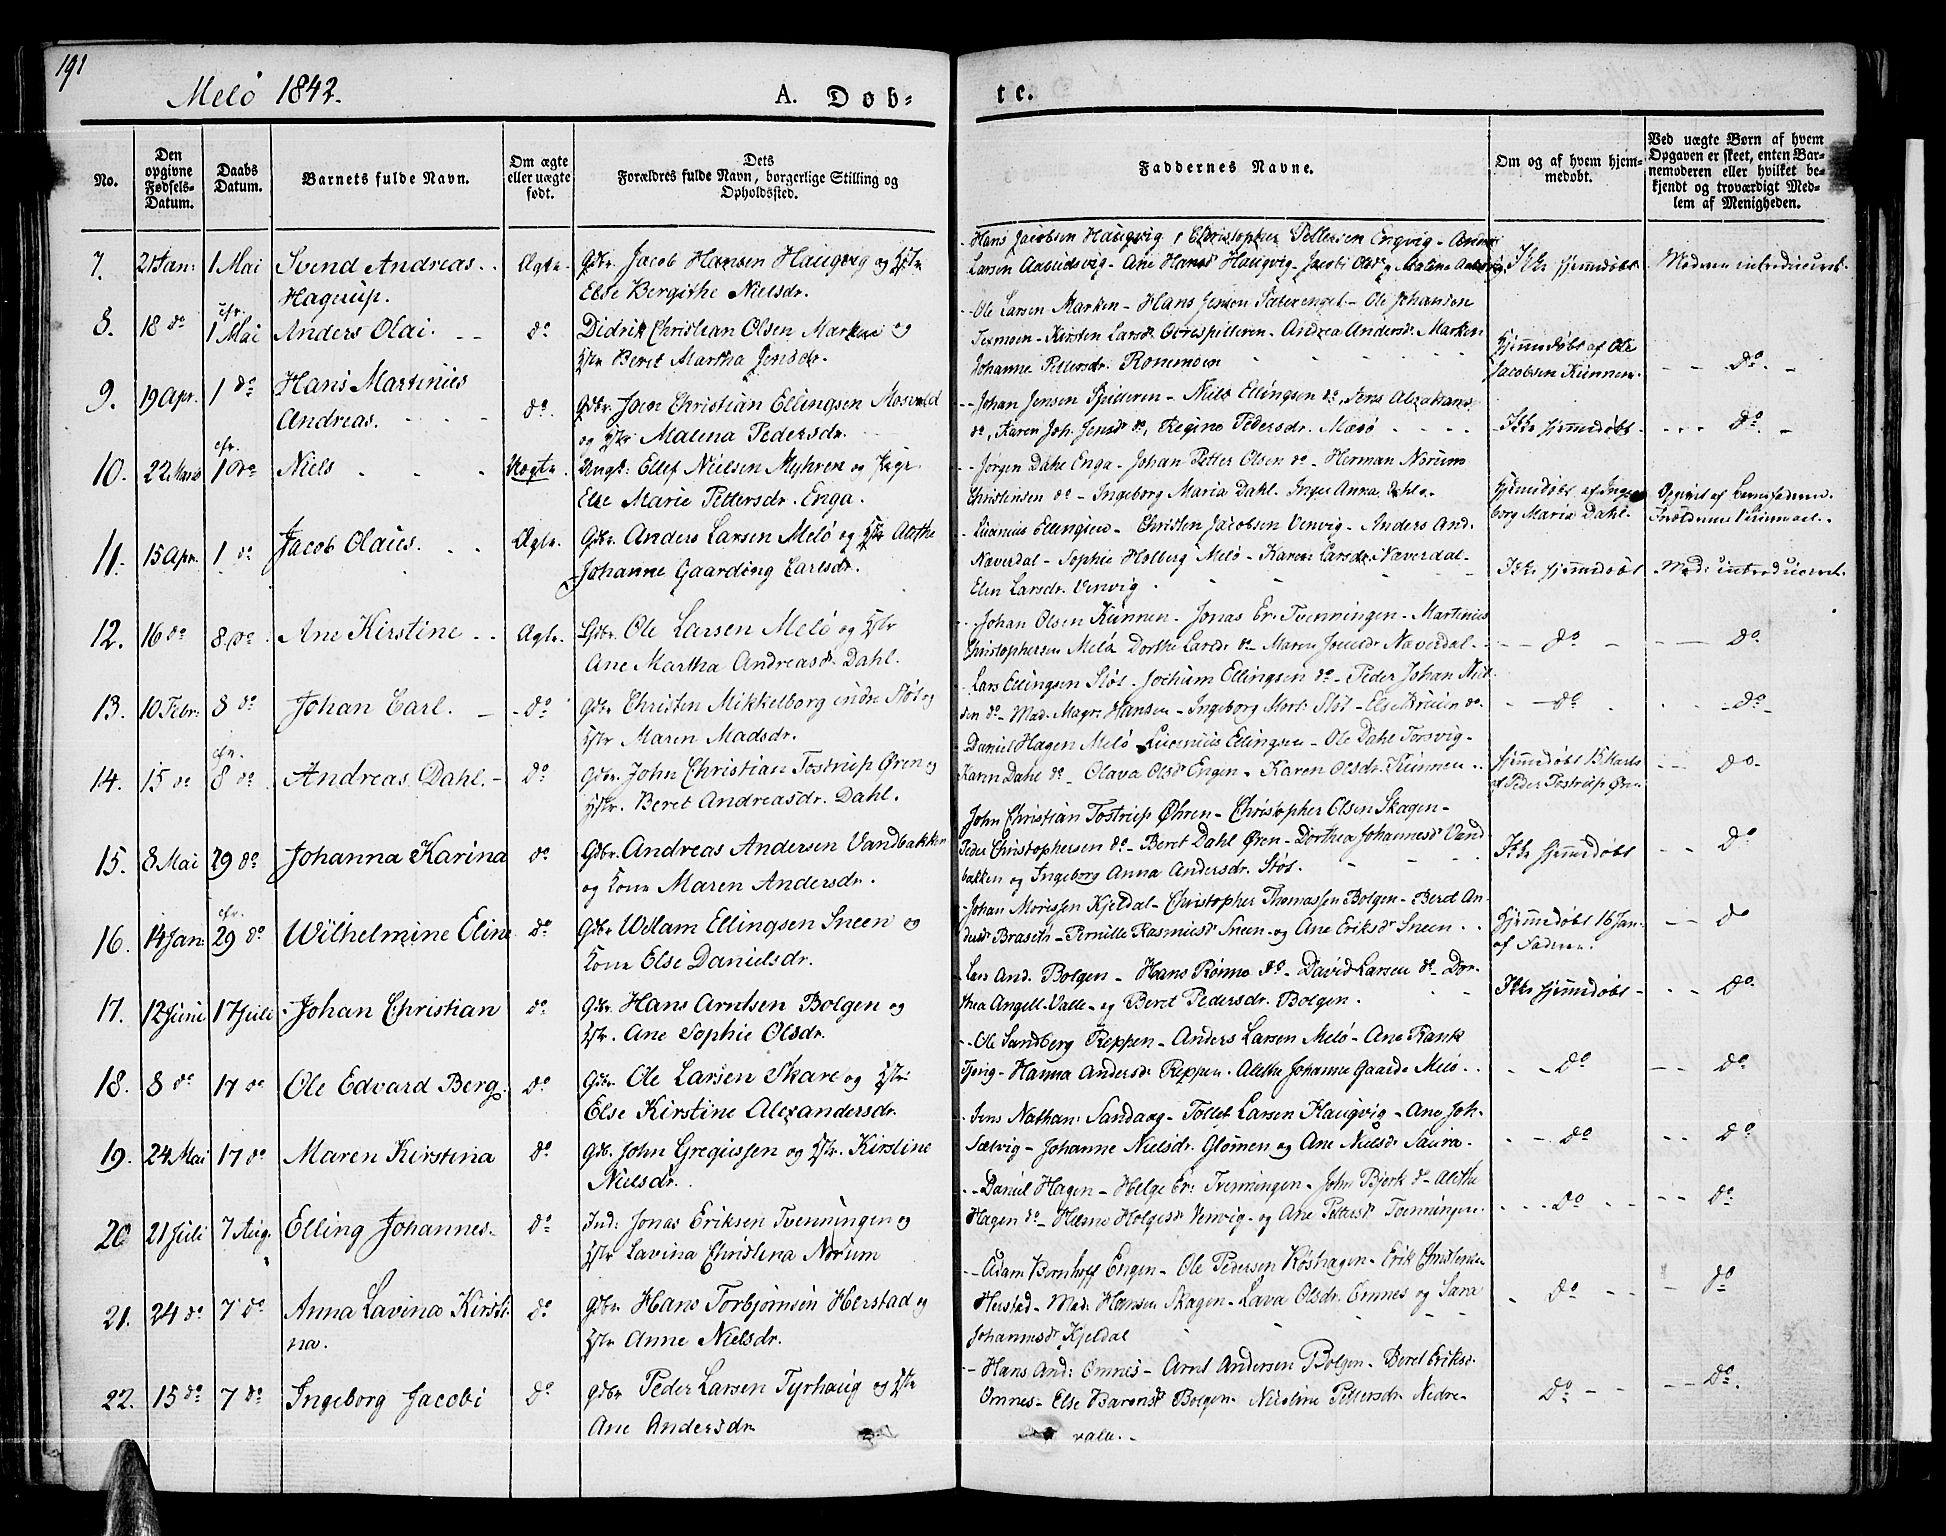 191
Melö 1842.
A. Döb-
te.
No.
Den opgivne Fødsels-Datum.
Daabs Datum.
Barnets fulde Navn.
Om ægte eller uægte født.
Dets Forældres fulde Navn, borgerlige Stilling og Opholdssted.
Faddernes Navne.
Om og af hvem hjemmedøbt.
Ved uægte Børn af hvem Opgaven er skeet, enten Barnemoderen eller hvilket bekjendt og troværdigt Medlem af Menigheden.
7. 21 Jan: 1 Mai Svend Andreas Hagerup. Ægte. Gdbr. Jacob Hansen Haugvig og Hstr
Else Bergithe Nielsdr.
Hans Jacobsen Haugvig, Christopher Pettersen Engvig -
Larsen - Ane Hansd Haugvig - Jacobi Olsd
Ikke hjemmedøbt Moderen introduceret.
8. 18 do cfr. 1 Mai Anders Olai. do Didrik Christian Olsen Marken og
Hstr Beret Martha Jensdr.
Ole Larsen Marken - Hans Jensen - Ole Johansen
Texmoen - Kirsten Larsd - Andrea Andersdr. Marken
Johanne Pettersdr. Rommoen
Hjemmedøbt af Ole
Jacobsen Kunnen. do
9. 19 Apr. 1 do Hans Martinus
Andreas. do. Gdbr. Joen Christian Ellingsen Mosvold
og Hstr Malena Pedersdr.
Johan Jensen Spilderen - Niels Ellingsen do, Jens
do, Karen Joh. Jensd do, Regine Pedersdr. Mesö
Ikke hjemmedøbt do
10. 22 Marts cfr. 1 do Niels Uægte. Ungk: Ellef Nielsen Myhren og Pige
Else Marie Pettersdr. Enga.
Jörgen Dahl Enga - Johan Petter Olsen do - Herman Norum
Christensen do - Ingeborg Maria Dahl. Inger Anna Dahl.
Hjemmedøbt af Inge-
borg Maria Dahl. Opgivet af Barnefaderen.
11. 15 Apr. 1 do Jacob Olaus. Ægte. Gdbr. Anders Larsen Melö og Hstr Alethe
Johanne Gaarding Carlsdr.
Lucenius Ellingsen - Christen Jacobsen Venvig - Anders And.
Næverdal - Sophie Holberg Melö - Karen Larsdr. Næverdal -
Elen Larsdr. Venvig
Ikke hjemmedøbt Mod: introduceret.
12. 16 do 8 do Ane Kirstine Ægte. Gdbr. Ole Larsen Melö og Hstr
Ane Martha Andreasd. Dahl.
Johan Olsen Kunnen - Jonas Er. Tvenningen - Martinus
Christophersen Melö. Dorthe Larsdr do - Maren Jonsdr. Næverdal
do do
13. 10 Febr: 8 do Johan Carl. do Gdbr Christen Mikkelborg indre Stöt og
Hstr Maren Madsdr.
Lars Ellingsen Stöt - Jochum Ellingsen do - Peder Johan
do - Mad. Magr. Hansen - Ingeborg Mort: Stöt - Else Bruun do
do do
14. 15 do cfr. 8 do Andreas Dahl. do Gdbr. John Christian Tostrup Øren og
Hstr. Beret Andreasdr. Dahl.
Daniel Hagen Melö - Lucenius Ellingsen - Ole Dahl Torsvig -
Karen Dahl do - Olava Olsdr Engen - Karen Olsdr. Kunnen
Hjemmedøbt 15 Marts
af Peder Tostrup Øren do
15. 8 Mai 29 do Johanna Karina do Gdbr. Andreas Andersen Vandbakken
og Kone Maren Andersdr.
John Christian Tostrup Øhren - Christopher Olsen Skagen -
Peder Christophersen do - Beret Dahl Øren - Dorthea Johannesd Vand
bakken og Ingeborg Anna Andersdr. Stöt.
Ikke hjemmedøbt do
16. 14 Jan: cfr. 29 do Wilhelmine Eline do Gdbr Welam Ellingsen Sneen og
Kone Else Danielsdr.
Johan Morissen Kjeldal - Christopher Thomassen Bolgen - Beret An
dersdr Braset - Pernille Rasmusd Sneen - og Ane Eriksd Sneen
Hjemmedøbt 16 Jan.
af Faderen. do
17. 12 Juni 17 Juli Johan Christian do Gdbr. Hans Arntsen Bolgen og
Hstr. Ane Sophie Olsdr.
Lars And. Bolgen - Hans Rönno do - David Larsen do - Dor-
thea Angell Valle - og Beret Pedersdr. Bolgen.
Ikke hjemmedøbt do
18. 8 do 17 do Ole Edvard Berg. do Gdbr. Ole Larsen Skare og Hstr
Else Kirstine Alexandersdr.
Ole Sandberg Reppen - Anders Larsen Melö - Ane Rank
Tjerig - Hanna Andersdr Reppen. Alethe Johanne Gaard. Melö
do do
19. 24 Mai 17 do Maren Kirstina do Gdb. John Gregussen og Hstr. Kirstine
Nielsdr.
Jens Nathan: Sandaag - Tollef Larsen Haugvig - Ane Joh.
Selvig - Johanne Nielsdr. Glomen og Ane Nielsdr Saura
do do
20 21 Juli 7 Aug. Elling Johannes. do Ind: Jonas Eriksen Tvenningen og
Hstr Lavina Christina Norum
Daniel Hagen - Helge Er: Tvenningen - John Bjerk do - Alethe
Hagen do - Helene Holgesd Venvig - og Ane Pettersd Tvenningen
do do
21. 24 do 7 do Anna Lavina Kirsti
na. do Gdbr Hans Torbjørnsen Herstad og
Hstr Anne Nielsdr.
Adam Bernhoff Engen - Ole Pedersen Röshagen - Erik Christensen
Herstad - Mad. Hansen Skagen - Lava Olsdr. Omnes og Sara
Johannesd Kjeldal
do do
22. 15 do 7 do Ingeborg Jacobi do Gdbr Peder Larsen Tyrhaug og Hstr
Ane Andersdr
Hans And: Omnes - Arnt Andersen Bolgen - Beret Eriksd.
Omnes - Else Barensd Bolgen - Nicoline Pettersdr Nedre-
valle.
do do.